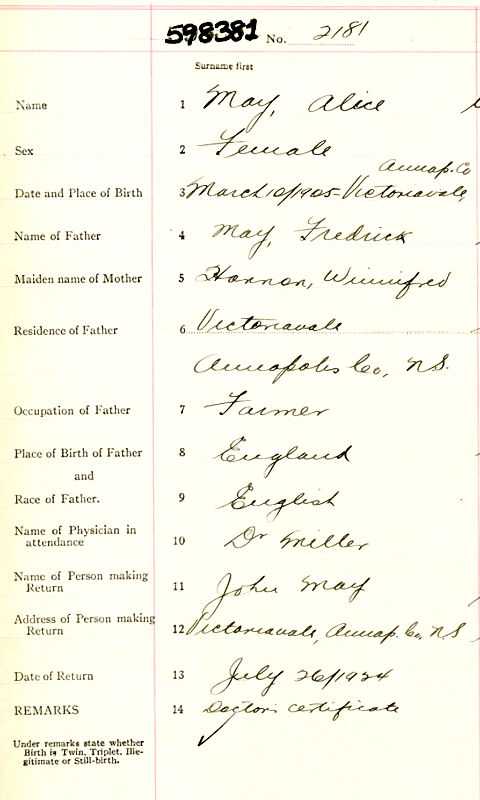 598381 No. 2181
Surname first
Name 1 May, Alice
Sex 2 Female
Annap. Co
Date and Place of Birth 3 March 10/1905 - Victoriavale,
Name of Father 4 May, Fredrick
Maiden name of Mother 5 Hannon, Winnifred
Residence of Father 6 Victoriavale
Annapolis Co, N.S.
Occupation of Father 7 Farmer
Place of Birth of Father 8 England
and
Race of Father. 9 English
Name of Physician in
attendance 10 Dr Miller
Name of Person making
Return 11 John May
Address of Person making
Return 12 Victoriavale, Annap. Co, N S
Date of Return 13 July 26/1924
REMARKS 14 Doctors certificate
Under remarks state whether
Birth is Twin, Triplet, Ille-
gitimate or Still-birth.